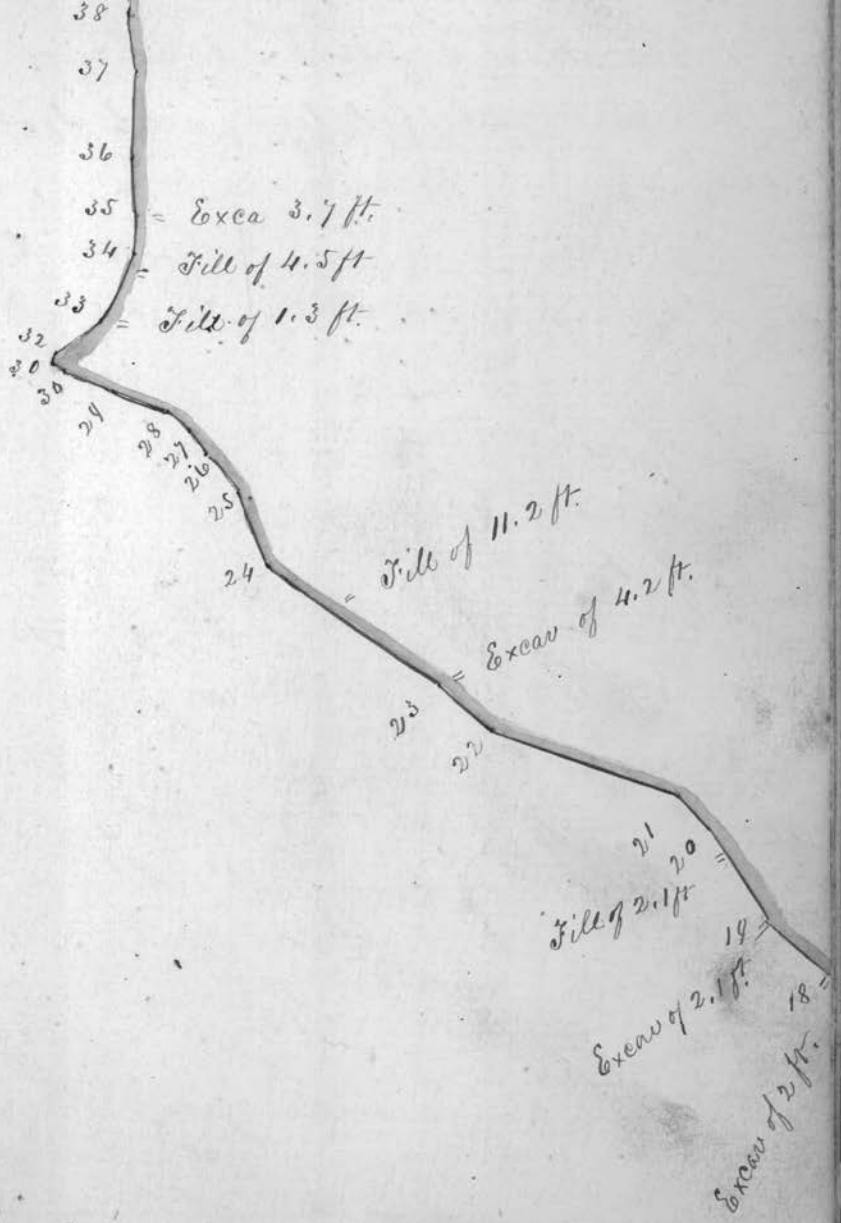 38
37
36
35 = Exca 3.7 ft.
34 = Fill of 4.5 ft
33 = Fill of 1.3 ft.
32
30
30
29
28
27
26
25
24
= Fill of 11.2 ft.
= Excav of 4.2 ft.
23
22
21
20 =
Fill of 2.1 ft
19 =
Excav of 2.1 ft.
18 =
Excav of 2 ft.